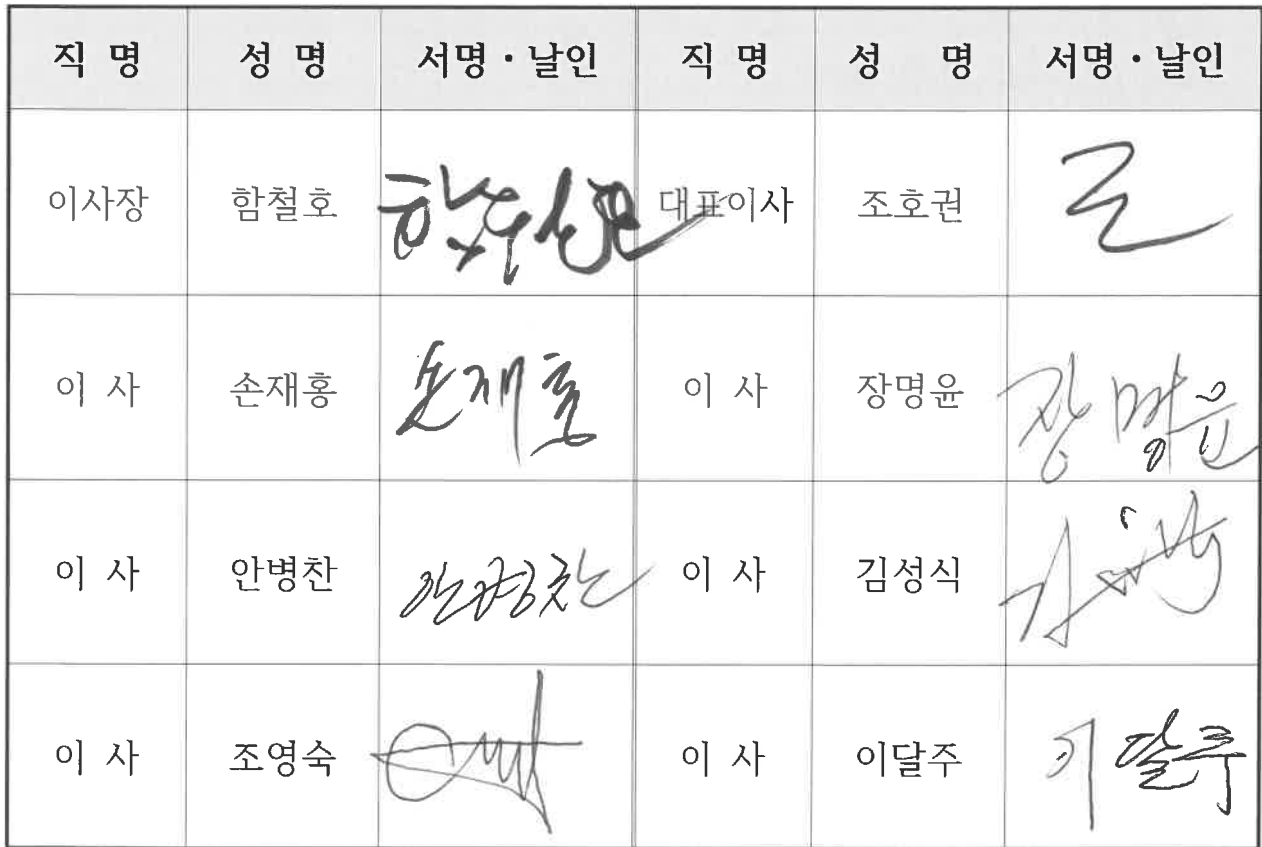 직 명 성 명 서명·날인 직 명 성 명 서명·날인
이사장 함철호 대표이사 조호권
이 사 손재홍 손재홍 이 사 장명윤 장명윤
이 사 안병찬 안병찬 이 사 김성식
이 사 조영숙 이 사 이달주 이달주